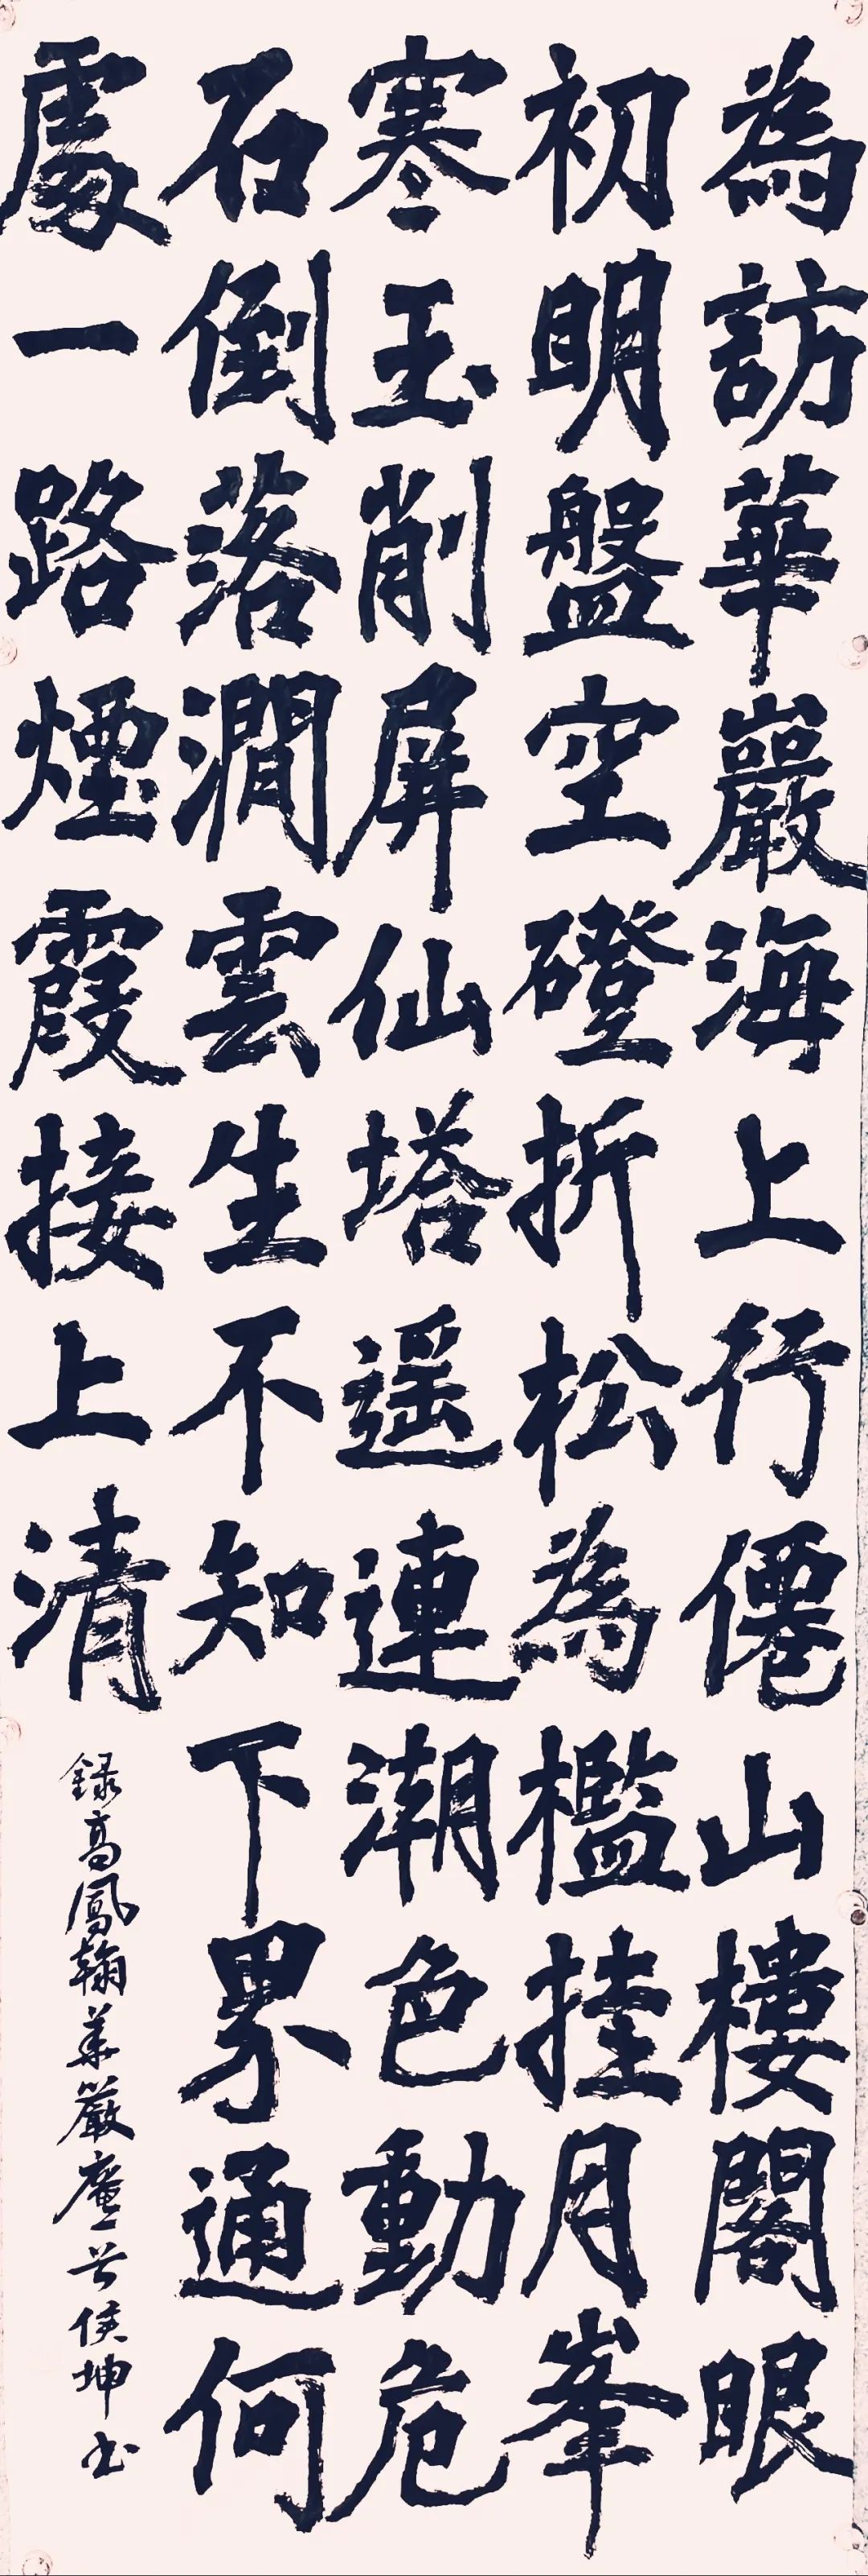 為訪華巖海上行僊山樓閣眼
初明盤空磴折松為檻挂月峯
寒玉削屏仙塔遥連潮色動危
石倒落澗雲生不知下界通何
處一路煙霞接上清
録高鳳翰華嚴庵一首侯坤书